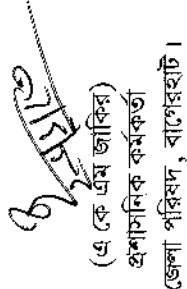 (এ কে এম জাকির)
প্রশাসনিক কর্মকর্তা
জেলা পরিষদ, বাগেরহাট।